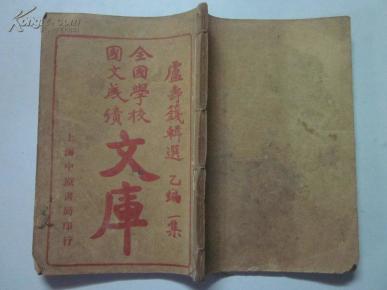 盧壽籛輯選 乙編一集
全國學校
國文成績
文庫
上海中原書局印行
Kongfz.com
孔夫子旧书网